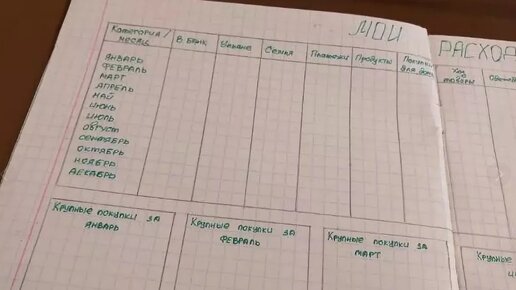 МОИ РАСХОД
КАТЕГОРИЯ / МЕСЯЦ
В. БАНК
СЕМЬЯ
ПЛАТЕЖКИ
ПРОДУКТЫ
ПОКУПКИ ДЛЯ ДОМА
ХОЗ ТОВАРЫ
ЯНВАРЬ
ФЕВРАЛЬ
МАРТ
АПРЕЛЬ
МАЙ
ИЮНЬ
ИЮЛЬ
АВГУСТ
СЕНТЯБРЬ
ОКТЯБРЬ
НОЯБРЬ
ДЕКАБРЬ
КРУПНЫЕ ПОКУПКИ ЗА
ЯНВАРЬ
КРУПНЫЕ ПОКУПКИ ЗА
ФЕВРАЛЬ
КРУПНЫЕ ПОКУПКИ ЗА
МАРТ
КРУПНЫЕ